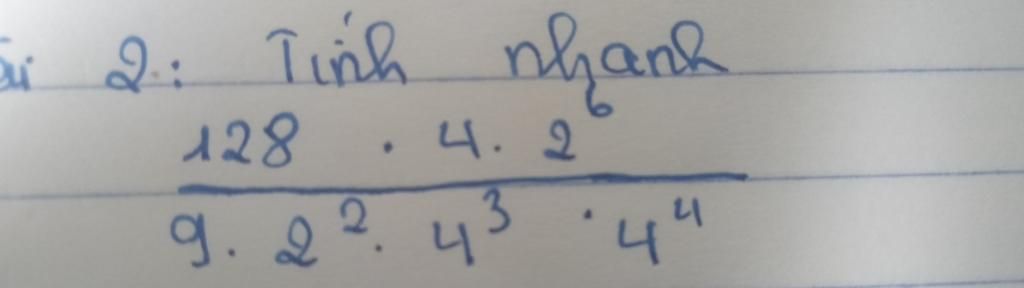 ài 2: Tính nhanh
128 . 4. 2^6
9. 2^2. 4^3 . 4^4